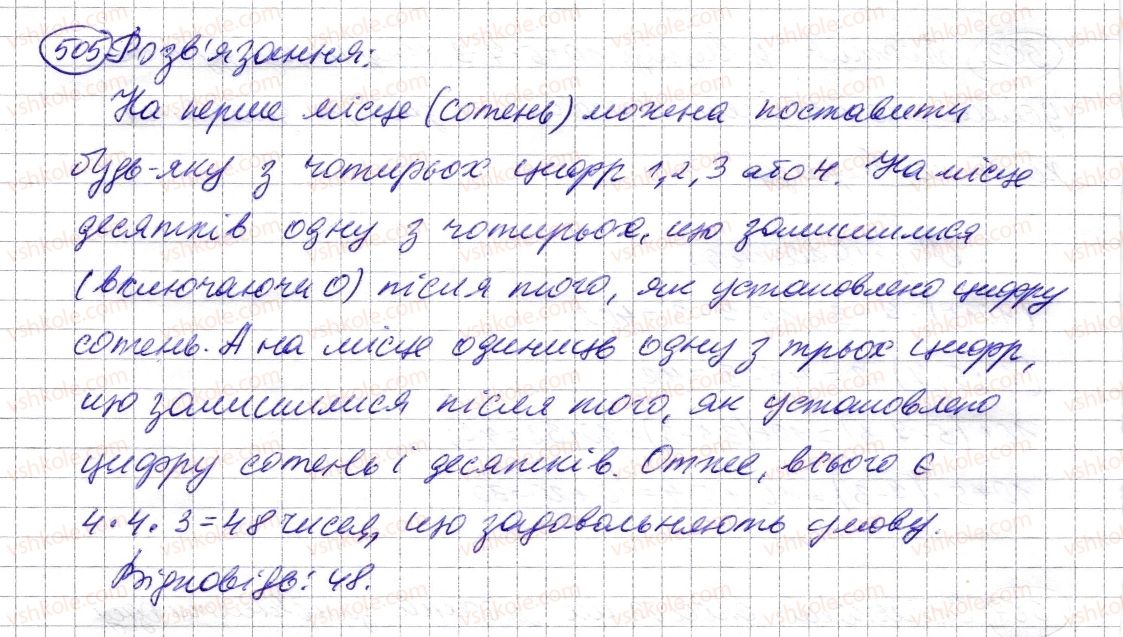 505 Розв'язання:
На перше місце (сотень) можна поставити
будь-яку з чотирьох цифр 1, 2, 3 або 4. На місце
десятків одну з чотирьох, що залишилися
(включаючи 0) після того, як установлено цифру
сотень. А на місце одиниць одну з трьох цифр,
що залишилися після того, як установлено
цифру сотень і десятків. Отже, всього є
4 · 4 · 3 = 48 чисел, що задовольняють умову.
Відповідь: 48.